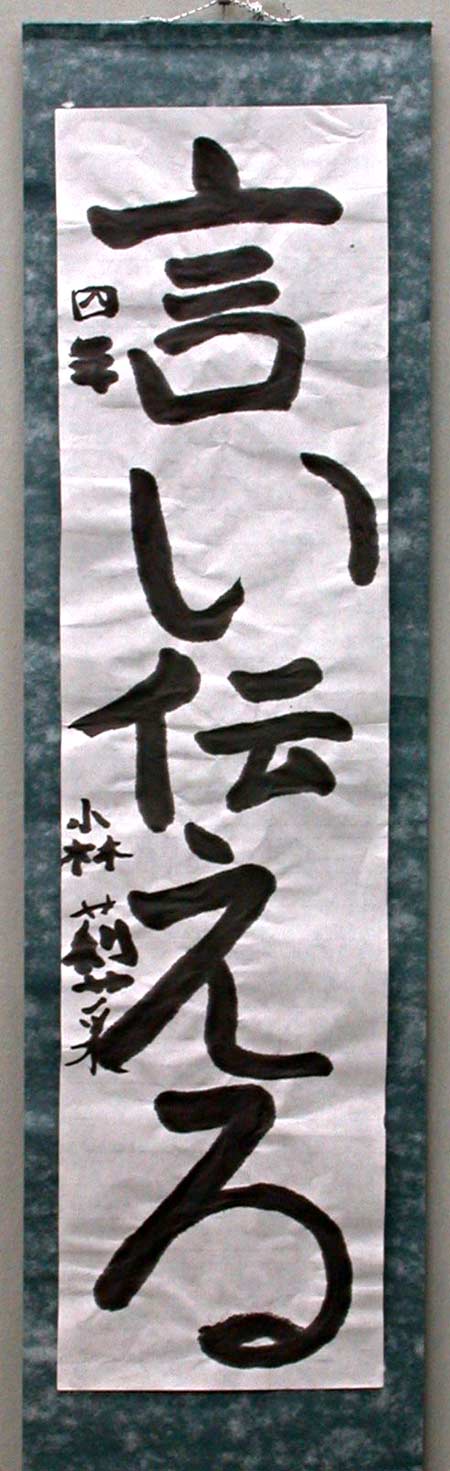 言い伝える
四年
小林